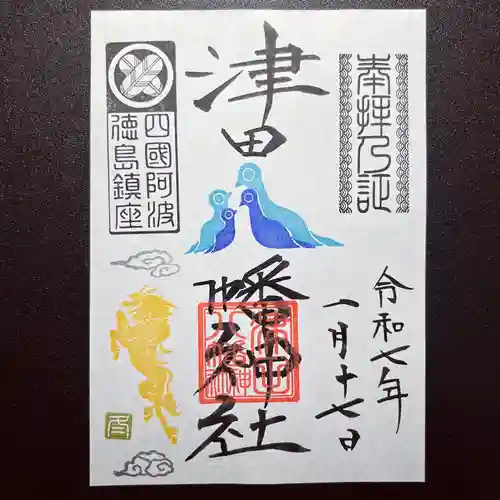 奉拝乃証
津田
幡神社
四國阿波
徳島鎮座
令和七年
一月十七日